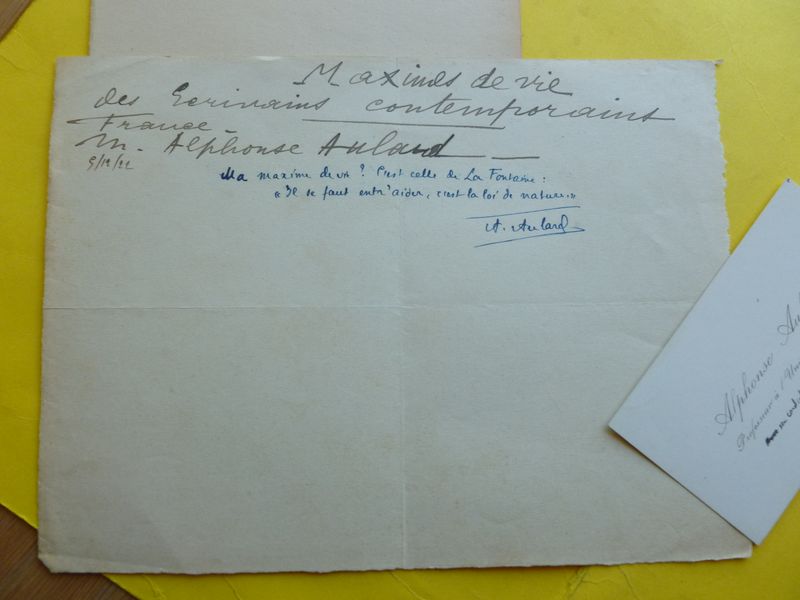 Maximes de vie
des Ecrivains contemporains
France -
M. Alphonse Aulard —
9/12/22
Ma maxime de vie ? C'est celle de La Fontaine :
« Il se faut entr'aider, c'est la loi de nature. »
A. Aulard
Alphonse Au
Professeur à l'Un